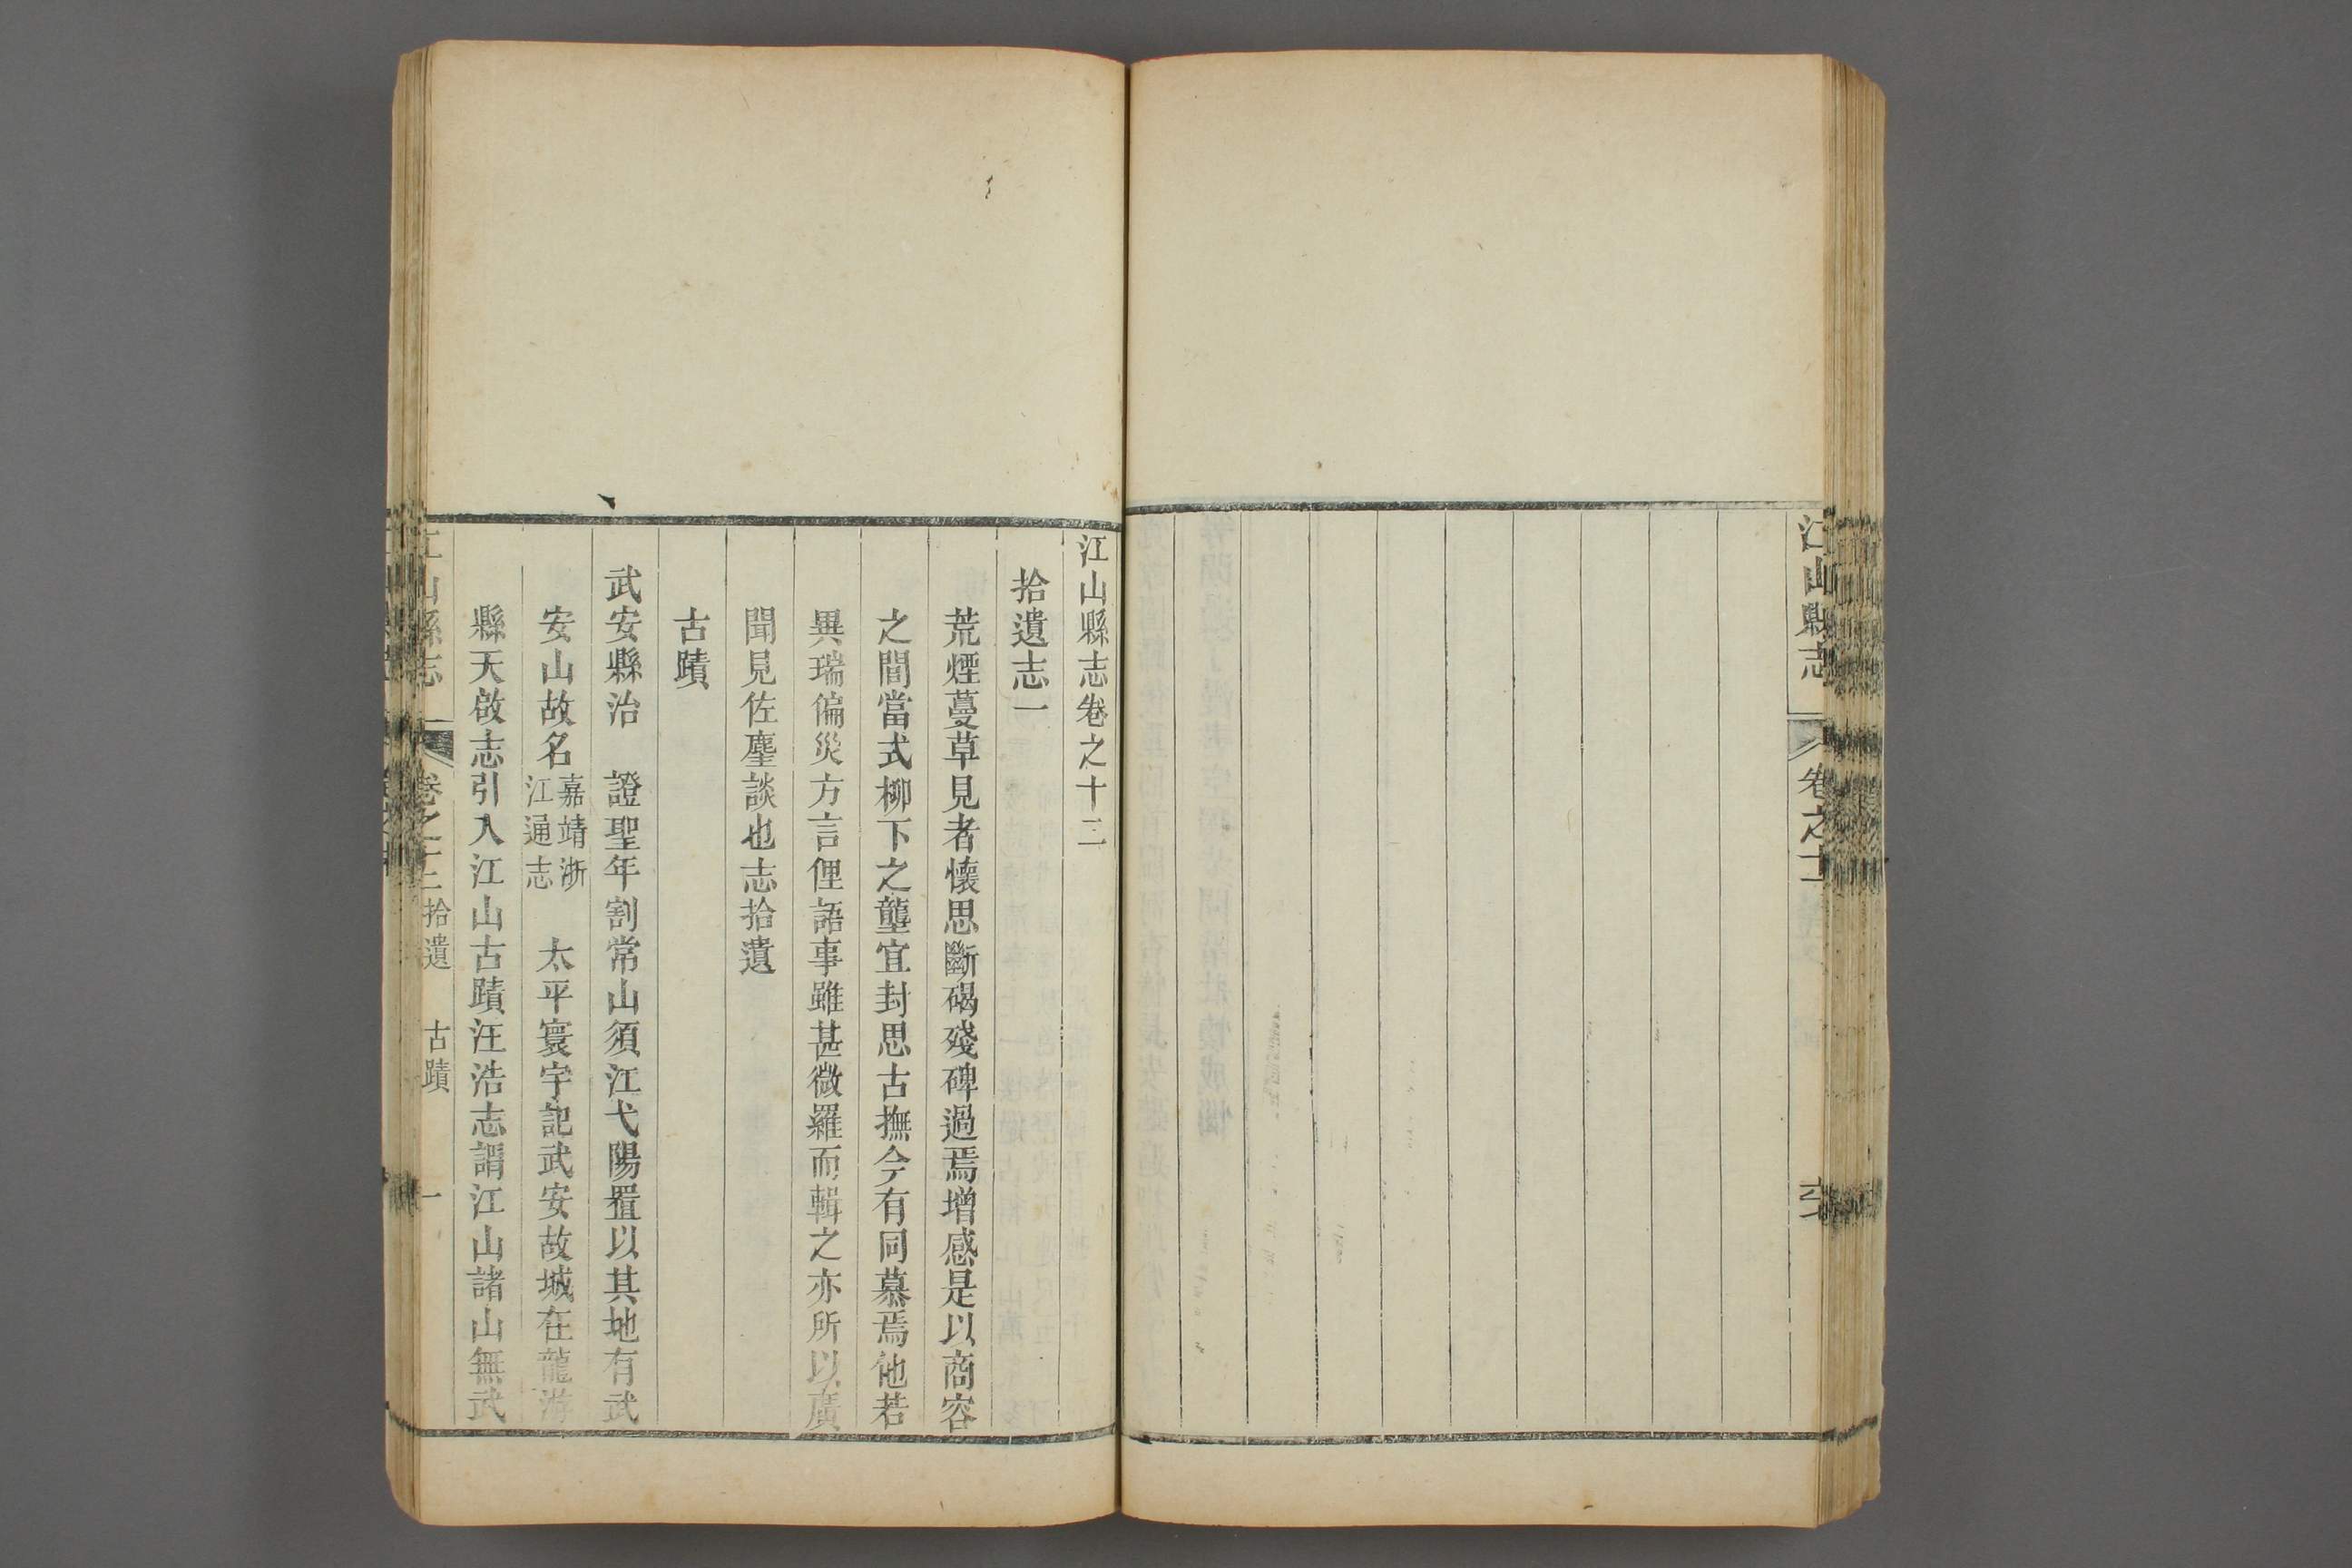 江山縣志
卷之十一
江山縣志卷之十二
拾遺志一
荒煙蔓草見者懷思斷碣殘碑過焉增感是以商容
之間當式柳下之壟宜封思古撫今有同慕焉他若
異瑞偏災方言俚語事雖甚微羅而輯之亦所以廣
聞見佐麈談也志拾遺
古蹟
武安縣治　證聖年割常山須江弋陽置以其地有武
安山故名嘉靖浙江通志　太平寰宇記武安故城在龍游
縣天啟志引入江山古蹟汪浩志謂江山諸山無武
江山縣志　卷之十二　拾遺　古蹟　一